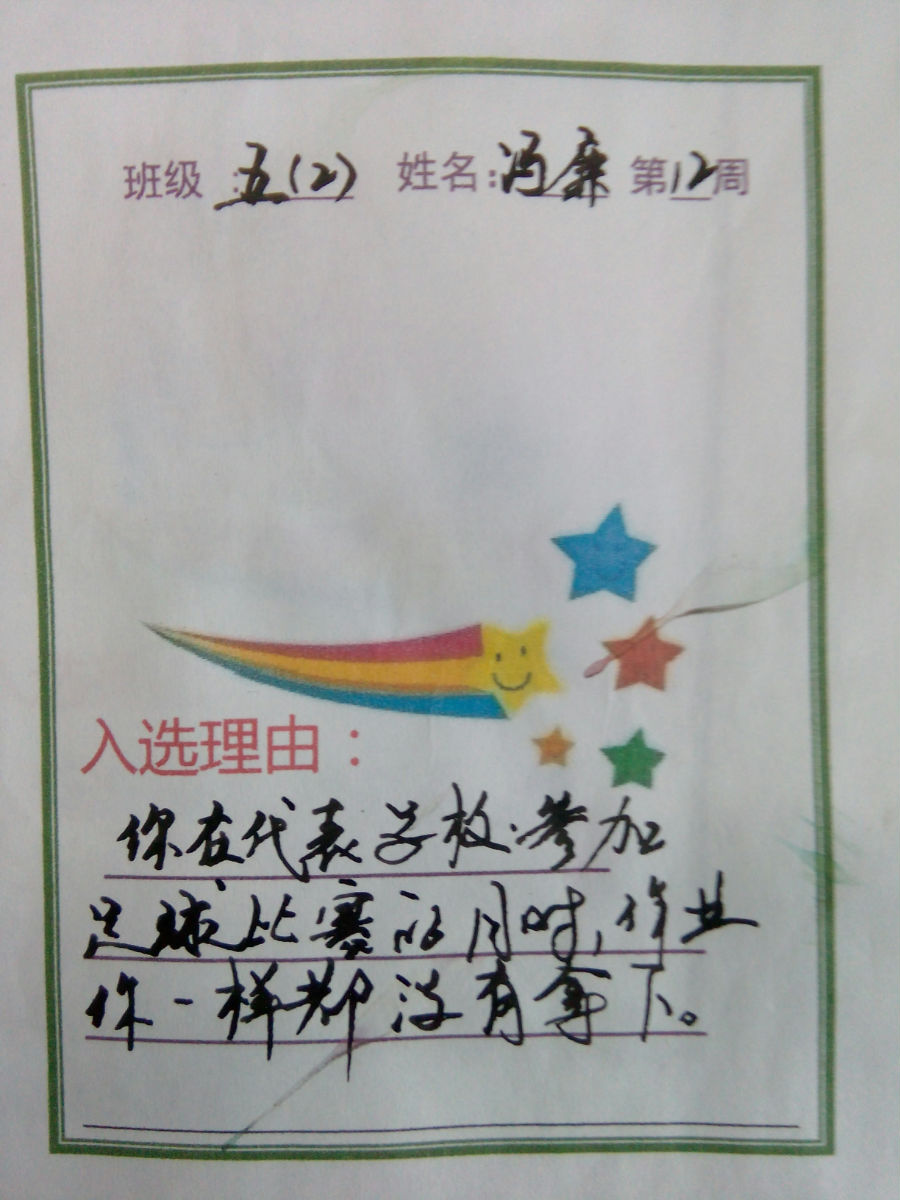 班级：五(2) 姓名：冯廉 第12周
入选理由：
你在代表学校参加
足球比赛的同时，作业
你一样都没有拿下。